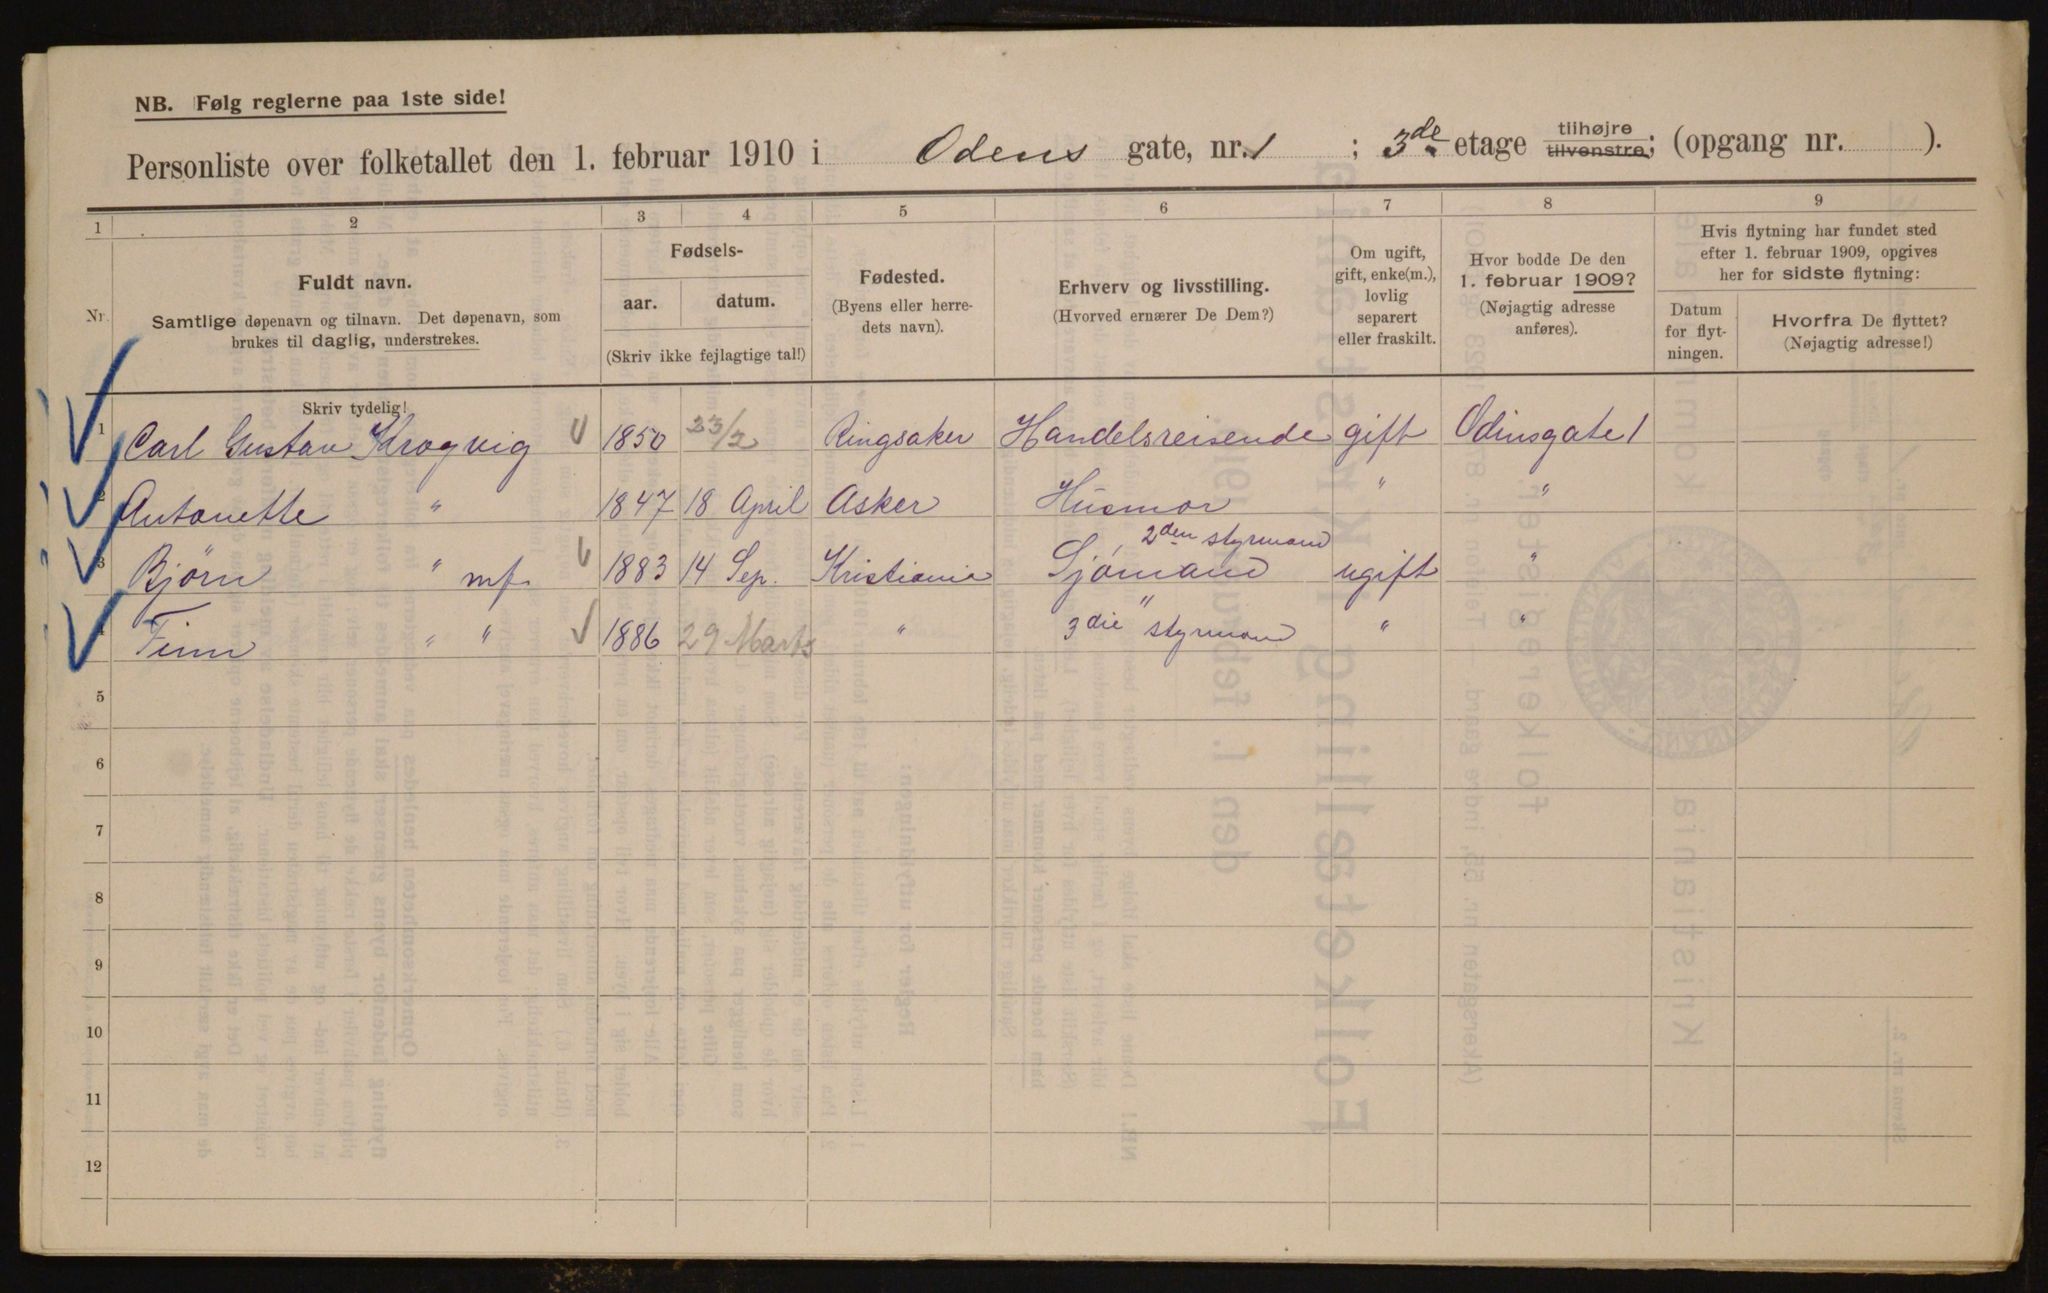 NB. Følg reglerne paa 1ste side!
Personliste over folketallet den 1. februar 1910 i Odens gate, nr. 1 ; 3de etage tilhøjre tilvenstre; (opgang nr. ).
1 2 3 4 5 6 7 8 9
Nr.
Fuldt navn.
Samtlige døpenavn og tilnavn. Det døpenavn, som
brukes til daglig, understrekes.
Fødsels-
aar. datum.
(Skriv ikke fejlagtige tal!)
Fødested.
(Byens eller herre-
dets navn).
Erhverv og livsstilling.
(Hvorved ernærer De Dem?)
Om ugift,
gift, enke(m.),
lovlig
separert
eller fraskilt.
Hvor bodde De den
1. februar 1909?
(Nøjagtig adresse
anføres).
Hvis flytning har fundet sted
efter 1. februar 1909, opgives
her for sidste flytning:
Datum
for flyt-
ningen.
Hvorfra De flyttet?
(Nøjagtig adresse!)
Skriv tydelig!
1 Carl Gustav Krogvig 1850 23/2 Ringsaker Handelsreisende gift Odinsgate 1
2 Antonette " 1847 18 April Asker Husmor " "
2den styrmand
3 Bjørn " mf. 1883 14 Sep. Kristiania Sjømand ugift "
4 Finn " " 1886 29 Marts " 3die " styrmand " "
5
6
7
8
9
10
11
12